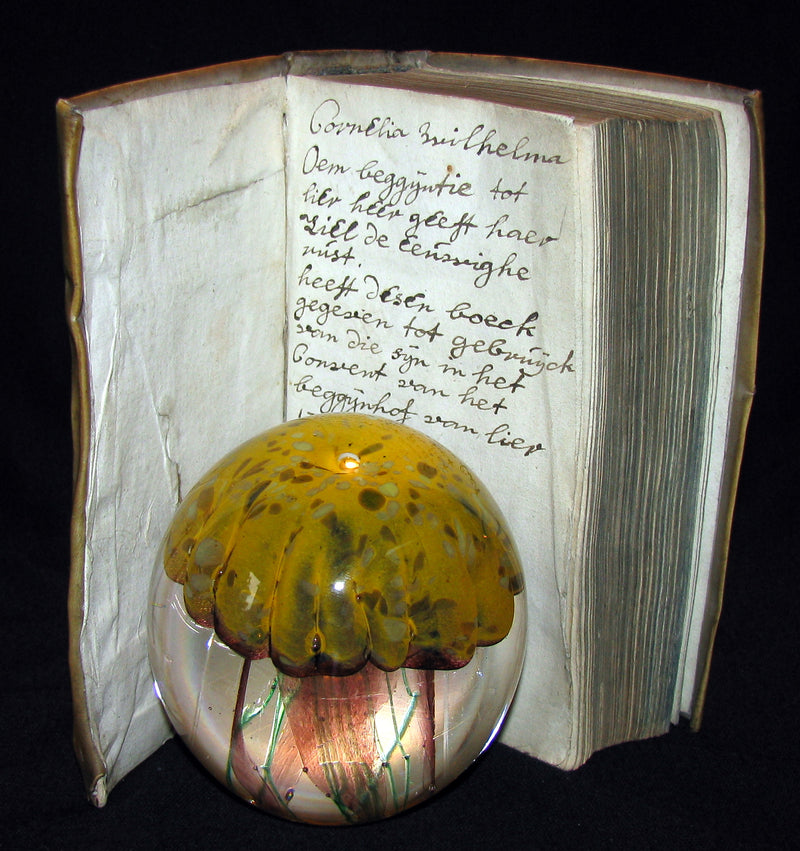 Cornelia wilhelma
Oem beggÿntie tot
lier heer geeft haer
Ziel de eeuwighe
rúst.
heeft desen boeck
gegeven tot gebrúÿck
van die sÿn in het
Convent van het
beggÿnhof van lier